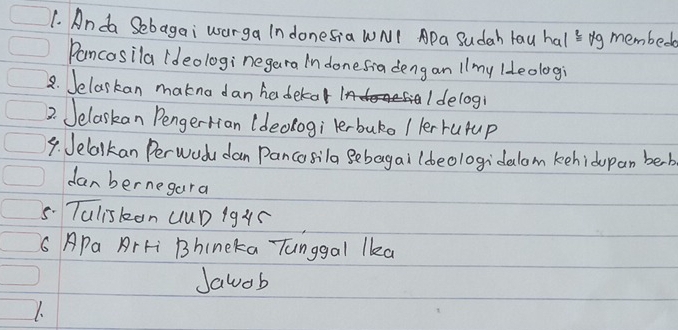 1. Anda Sebagai warga Indonesia WNI Apa sudah tau hal² yg membeda
Pancasila Ideologi negara Indonesia dengan Ilmy Ideologi
2. Jelaskan makna dan hadekat Indonesia Idelogi
2. Jelaskan Pengertian Ideologi terbuko / tertutup
4. Jelaskan Perwudu dan Pancasila Sebagai Ideologi dalam kehidupan berb
dan bernegara
5. Tuliskan UUD 1945
6 Apa Arti Bhineka Tunggal Ika
Jawab
1.